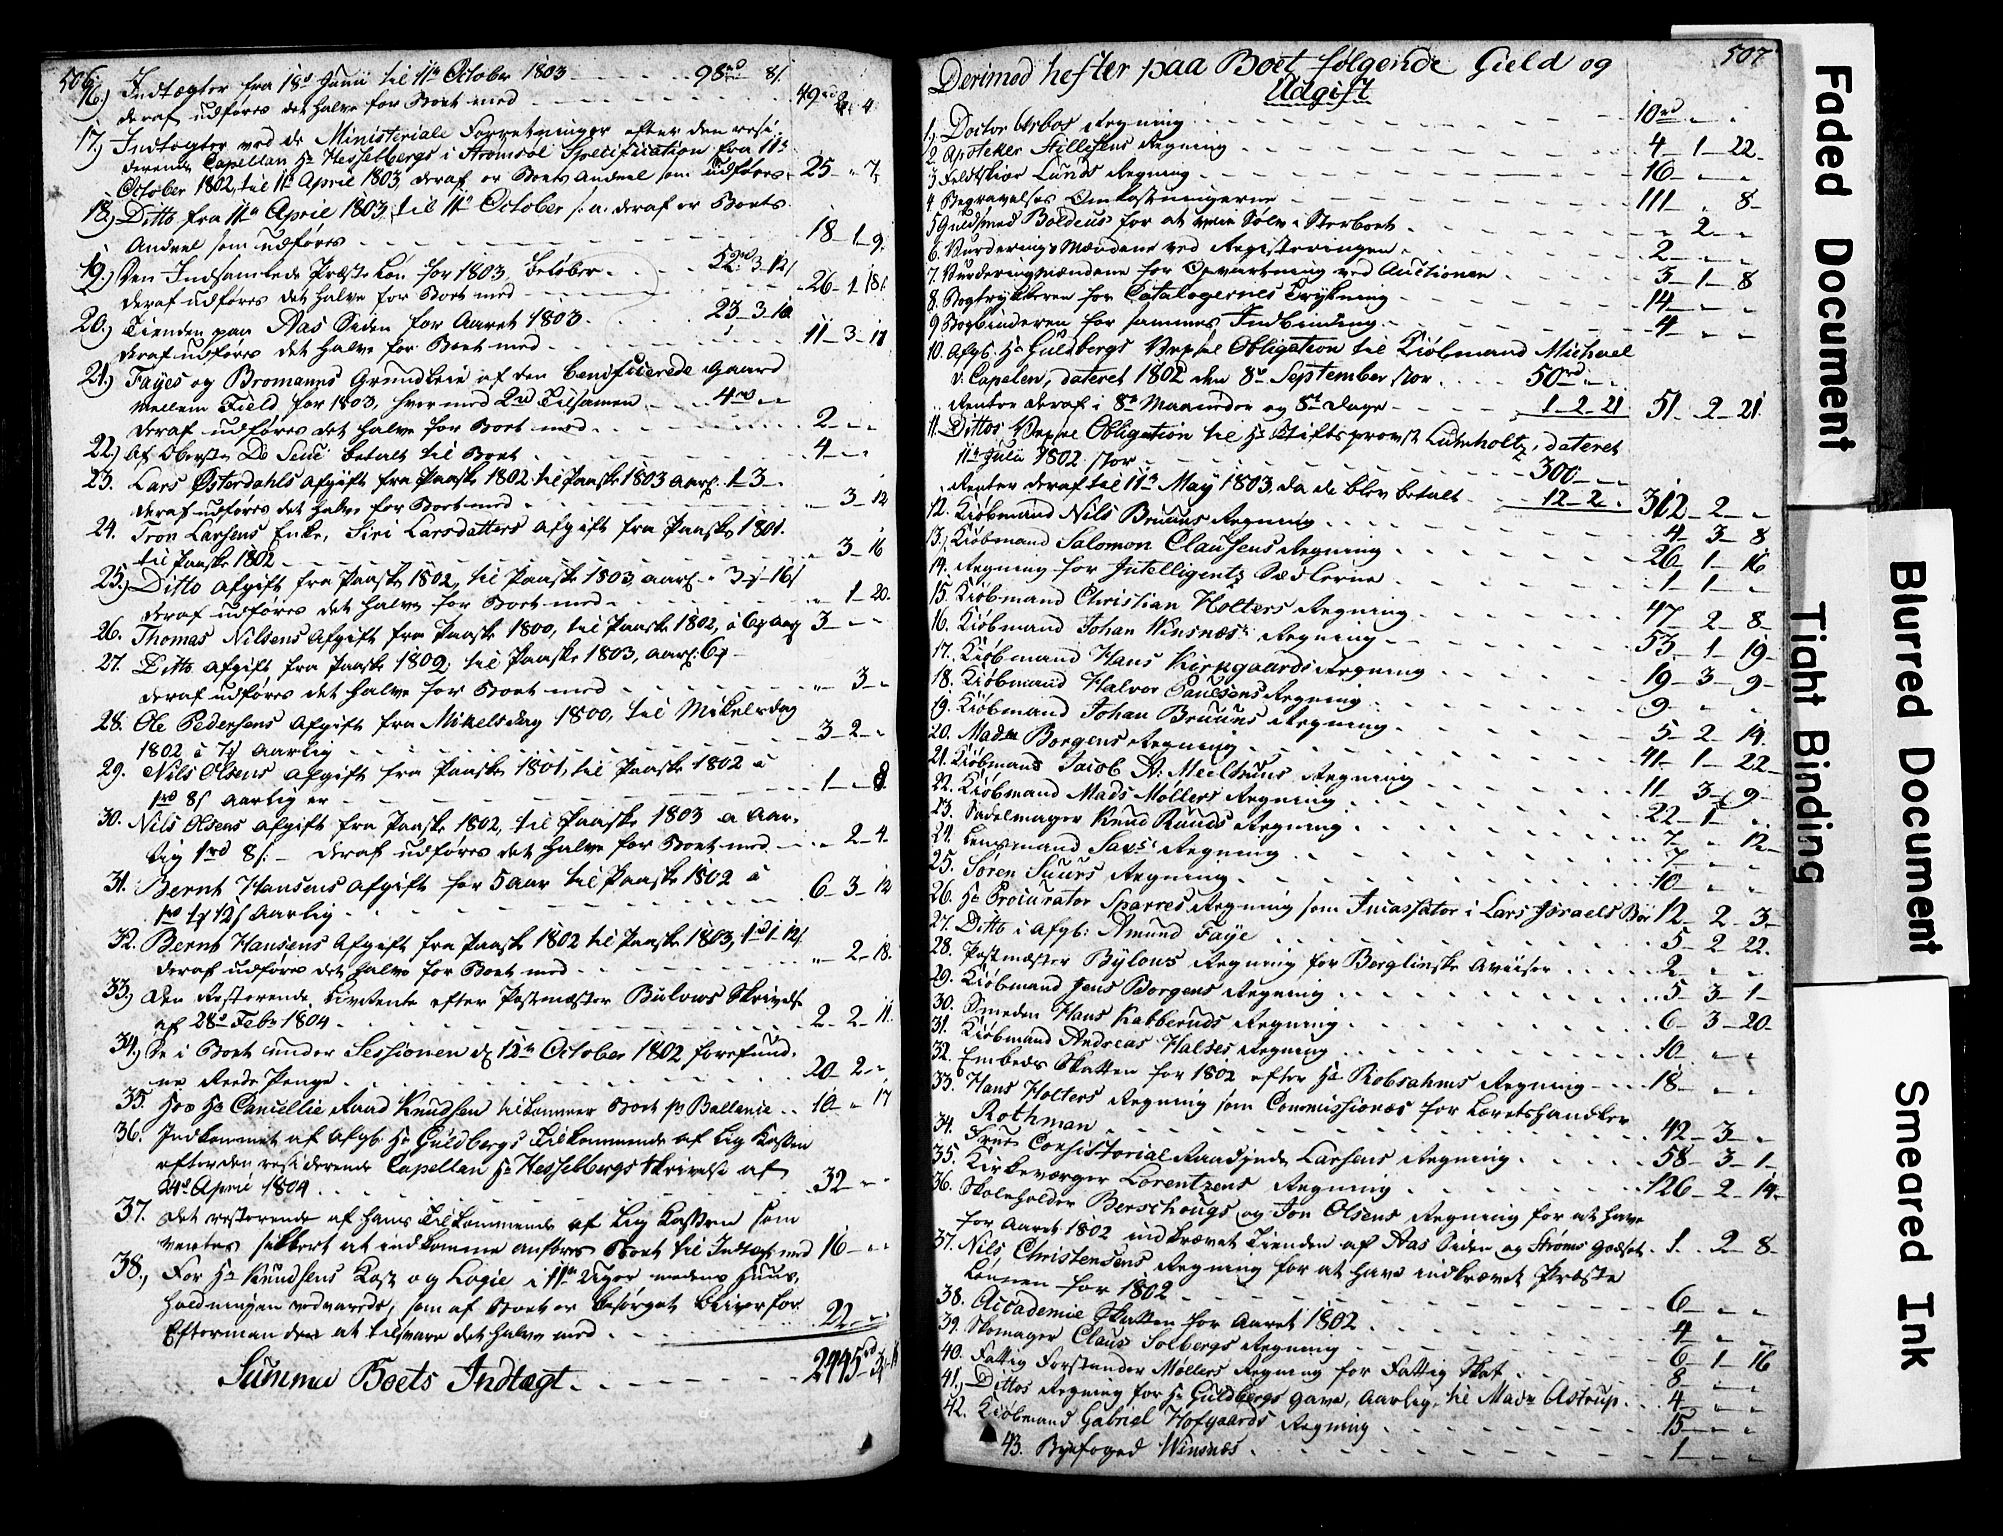 506.
16.) Indtægter fra 18d Junii til 11te October 1803 - - - 98rd " 8s
deraf udføres det halve for Boet med - - - 49rd " 4
17.) Indtægter ved de Ministeriale Forretninger efter den resi-
derende Capellan Hr Hesselbergs i Strømsøe Specification fra 11te
October 1802, til 11te April 1803, deraf er Boets Andeel som udføres - 25 - " 7
18.) Ditto fra 11te April 1803, til 11te October s: a: deraf er Boets
Andeel som udføres - - - 18 - 1 - 9.
19.) Den Indsamlede Præste Løn for 1803, beløber - - - 52rd 3 - 12s
deraf udføres det halve for Boet med - - - 26 - 1 - 18s
20.) Tienden paa Aas Siden for Aaret 1803 - - - 23 - 3 - 10
deraf udføres det halve for Boet med - - - 11 - 3 - 17
21.) Fayes og Bromanns Grundleie af den beneficerede Gaard
mellem Field for 1803, hver med 2rd Tilsamen - - 4rd " "
deraf udføres det halve for Boet med - - - 2 - " - "
22.) Af Oberste De Seue betalt til Boet - - - 4 - " - "
23. Lars Østerdahls Afgift fra Paaske 1802 til Paaske 1803 aarl. 1 - 3 - "
deraf udføres det halve for Boet med - - - " 3 - 12
24. Tron Larsens Enke, Siri Larsdatters Afgift fra Paaske 1801.
til Paaske 1802 - - - " 3 - 16
25.) Ditto Afgift fra Paaske 1802, til Paaske 1803 aarl. - " 3 - 16s
deraf udføres det halve for Boet med - - - " 1 - 20.
26. Thomas Nilsens Afgift fra Paaske 1800, til Paaske 1802, à 6 aarl 3 - " - "
27. Ditto Afgift fra Paaske 1802, til Paaske 1803, aarl. 6
deraf udføres det halve for Boet med - - - " 3 - "
28. Ole Pedersens Afgift fra Mikelsdag 1800, til Mikelsdag
1802 à 7 Aarlig - - - 3 - 2 - "
29. Nils Olsens Afgift fra Paaske 1801, til Paaske 1802 à
1rd 8s Aarlig er - - - 1 - " 8
30. Nils Olsens Afgift fra Paaske 1802, til Paaske 1803 a Aar-
lig 1rd 8s: - deraf udføres det halve for Boet med - - " 2 - 4.
31. Bernt Hansens Afgift for 5 Aar til Paaske 1802 à
1rd 1 12s Aarlig - - - 6 - 3 - 12
32. Bernt Hansens Afgift fra Paaske 1802 til Paaske 1803, 1rd 1 - 12s
deraf udføres det halve for Boet med - - - " 2 - 18.
33.) Den Resterende Livrente efter Postmæster Bulows Skrivelse
af 28de Febr 1804 - - - 2 - 2 - 11.
34.) De i Boet under Sessionen d 12te October 1802 forefund-
ne Reede Penge - - - 20 - 2 - "
35. Hos Hr Cancellie Raad Knudsen tilkommer Boet pr Ballance - - 10 - " 17
36. Indkommet af Afgb Hr Guldbergs Tilkommende af Lig Kassen
efter den residerende Capellan Hr Hesselbergs Skrivelse af
24de April 1804 - - - 32 - " - "
37. Det resterende af hans Tilkommende af Lig Kassen som
ventes sikkert at indkomme anføres Boet til Indtægt med 16 - " - "
38., For Hr Knudsens Kost og Logie i 11te Uger medens Huus-
holdningen vedvarede, som af Boet er besørget bliver for
Eftermanden at tilsvare det halve med - - - 22 - " - "
Summa Boets Indtægt - - - 2445rd
507
Derimod hefter paa Boet følgende Gield og
Udgift
1, Doctor Arbos Regning - - - 10rd - " - "
2. Apoteker Regning - - - 4 - 1 - 22.
3 Feldtskiær Lunds Regning - - - 16 - " - "
4 Begravelses Omkostningerne - - - 111 - " 8 -
5 Guldsmed Boldeus for at veie Sølv i Sterboet - - - " 2 - "
6. Vurderings Mændene ved Registeringen - - - 2 - " - "
7. Vurderingsmændene for Opvartning ved Auctionen - - - 3 - 1 - 8
8. Bogtrykkeren for Catalogernes Trykning - - - 14 - " - "
9 Bogbinderen for sammes Indbinding - - - 4 - " - "
10. Afgb. Hr Guldbergs Vexel Obligation til Kiøbmand Michael
v: Capelen, dateret 1802 den 8de September stor - - - 50rd " "
" Renter deraf i 8te Maaneder og 8te Dage - - - 1 - 2 - 21 51 - 2 - 21.
11. Dittos Vexel Obligation til Hr Stiftsprovst Lumholtz, dateret
11te Julii 1802 stor - - - 300 - " - "
Renter deraf til 11te May 1803, da de blev betalt - - 12 - 2 - " 312 - 2 - "
12. Kiøbmand Nils Bruuns Regning - - - 4 - 3 - 8
13., Kiøbmand Salomon Clausens Regning - - - 26 - 1 - 16
14. Regning for Intelligentz Sedlerne - - - 1 - 1 - "
15. Kiøbmand Christian Holters Regning - - - 47 - 2 - 8 -
16. Kiøbmand Johan Winsnæs's Regning - - - 53 - 1 - 19 -
17. Kiøbmand Hans Kirkgaards Regning - - - 19 - 3 - 9 -
18. Kiøbmand Halvor Paulsens Regning - - - 9 - " - "
19. Kiøbmand Johan Bruuns Regning - - - 5 - 2 - 14.
20. Madm Borgens Regning - - - 41 - 1 - 22 -
21. Kiøbmand Jacob A: Meeltzuns Regning - - - 11 - 3 - 9 -
22. Kiøbmand Mads Møllers Regning - - - 22 - 1 - "
23. Sadelmager Knud Ruuds Regning - - - 7 - " 12 -
24. Lensmand Regning - - - 7 - " - "
25. Søren Suurs Regning - - - 10 - " - "
26. Hr Procurator Sparres Regning som Incassator i Lars Israels Boe 12 - 2 - 3 -
27. Ditto i Afgb: Amund Faye - - - 5 - 2 - 22.
28. Postmæster Bylows Regning for Berglinske Aviiser - - - 2 - " - "
29. Kiøbmand Jens Borgens Regning - - - 5 - 3 - 1 -
30. Smeden Hans Kabberuds Regning - - - 6 - 3 - 20 -
31. Kiøbmand Andreas Halses Regning - - - 10 - " - "
32. Embeds Skatten for 1802 efter Hr Kiobsahms Regning - - - 18 - " - "
33. Hans Holters Regning som Commissionær for Lærretshandler
Rothman - - - 42 - 3 - "
34. Frue Consistorial Raadinde Larsens Regning - - - 58 - 3 - 1 -
35. Kirkeværger Lorentzens Regning - - - 126 - 2 - 14 -
36. Skoleholder Berschougs og Jon Olsens Regning for at have
for Aaret 1802 indkrævet Tienden af Aas Siden og Strøms Godset - 1 - 2 - 8 -
37. Nils Christensens Regning for at have indkrævet Præste
Lønnen for 1802 - - - 6 - " - "
38. Accademie Skatten for Aaret 1802 - - - 4 - " - "
39. Skomager Claus Solbergs Regning - - - 6 - 1 - 16
40. Fattig Forstander Møllers Regning for Fattig Skat - - - 8 - " - "
41., Dittos Regning for Hr Guldbergs Gave, Aarlig, til Madm Astrup - - - 4 - " - "
42. Kiøbmand Gabriel Hofgaards Regning - - - 15 - " - "
43. Byefoged Winsnæs - - - 1 - " - "
Faded Document
Tight Binding
Blurred Document
Smeared Ink